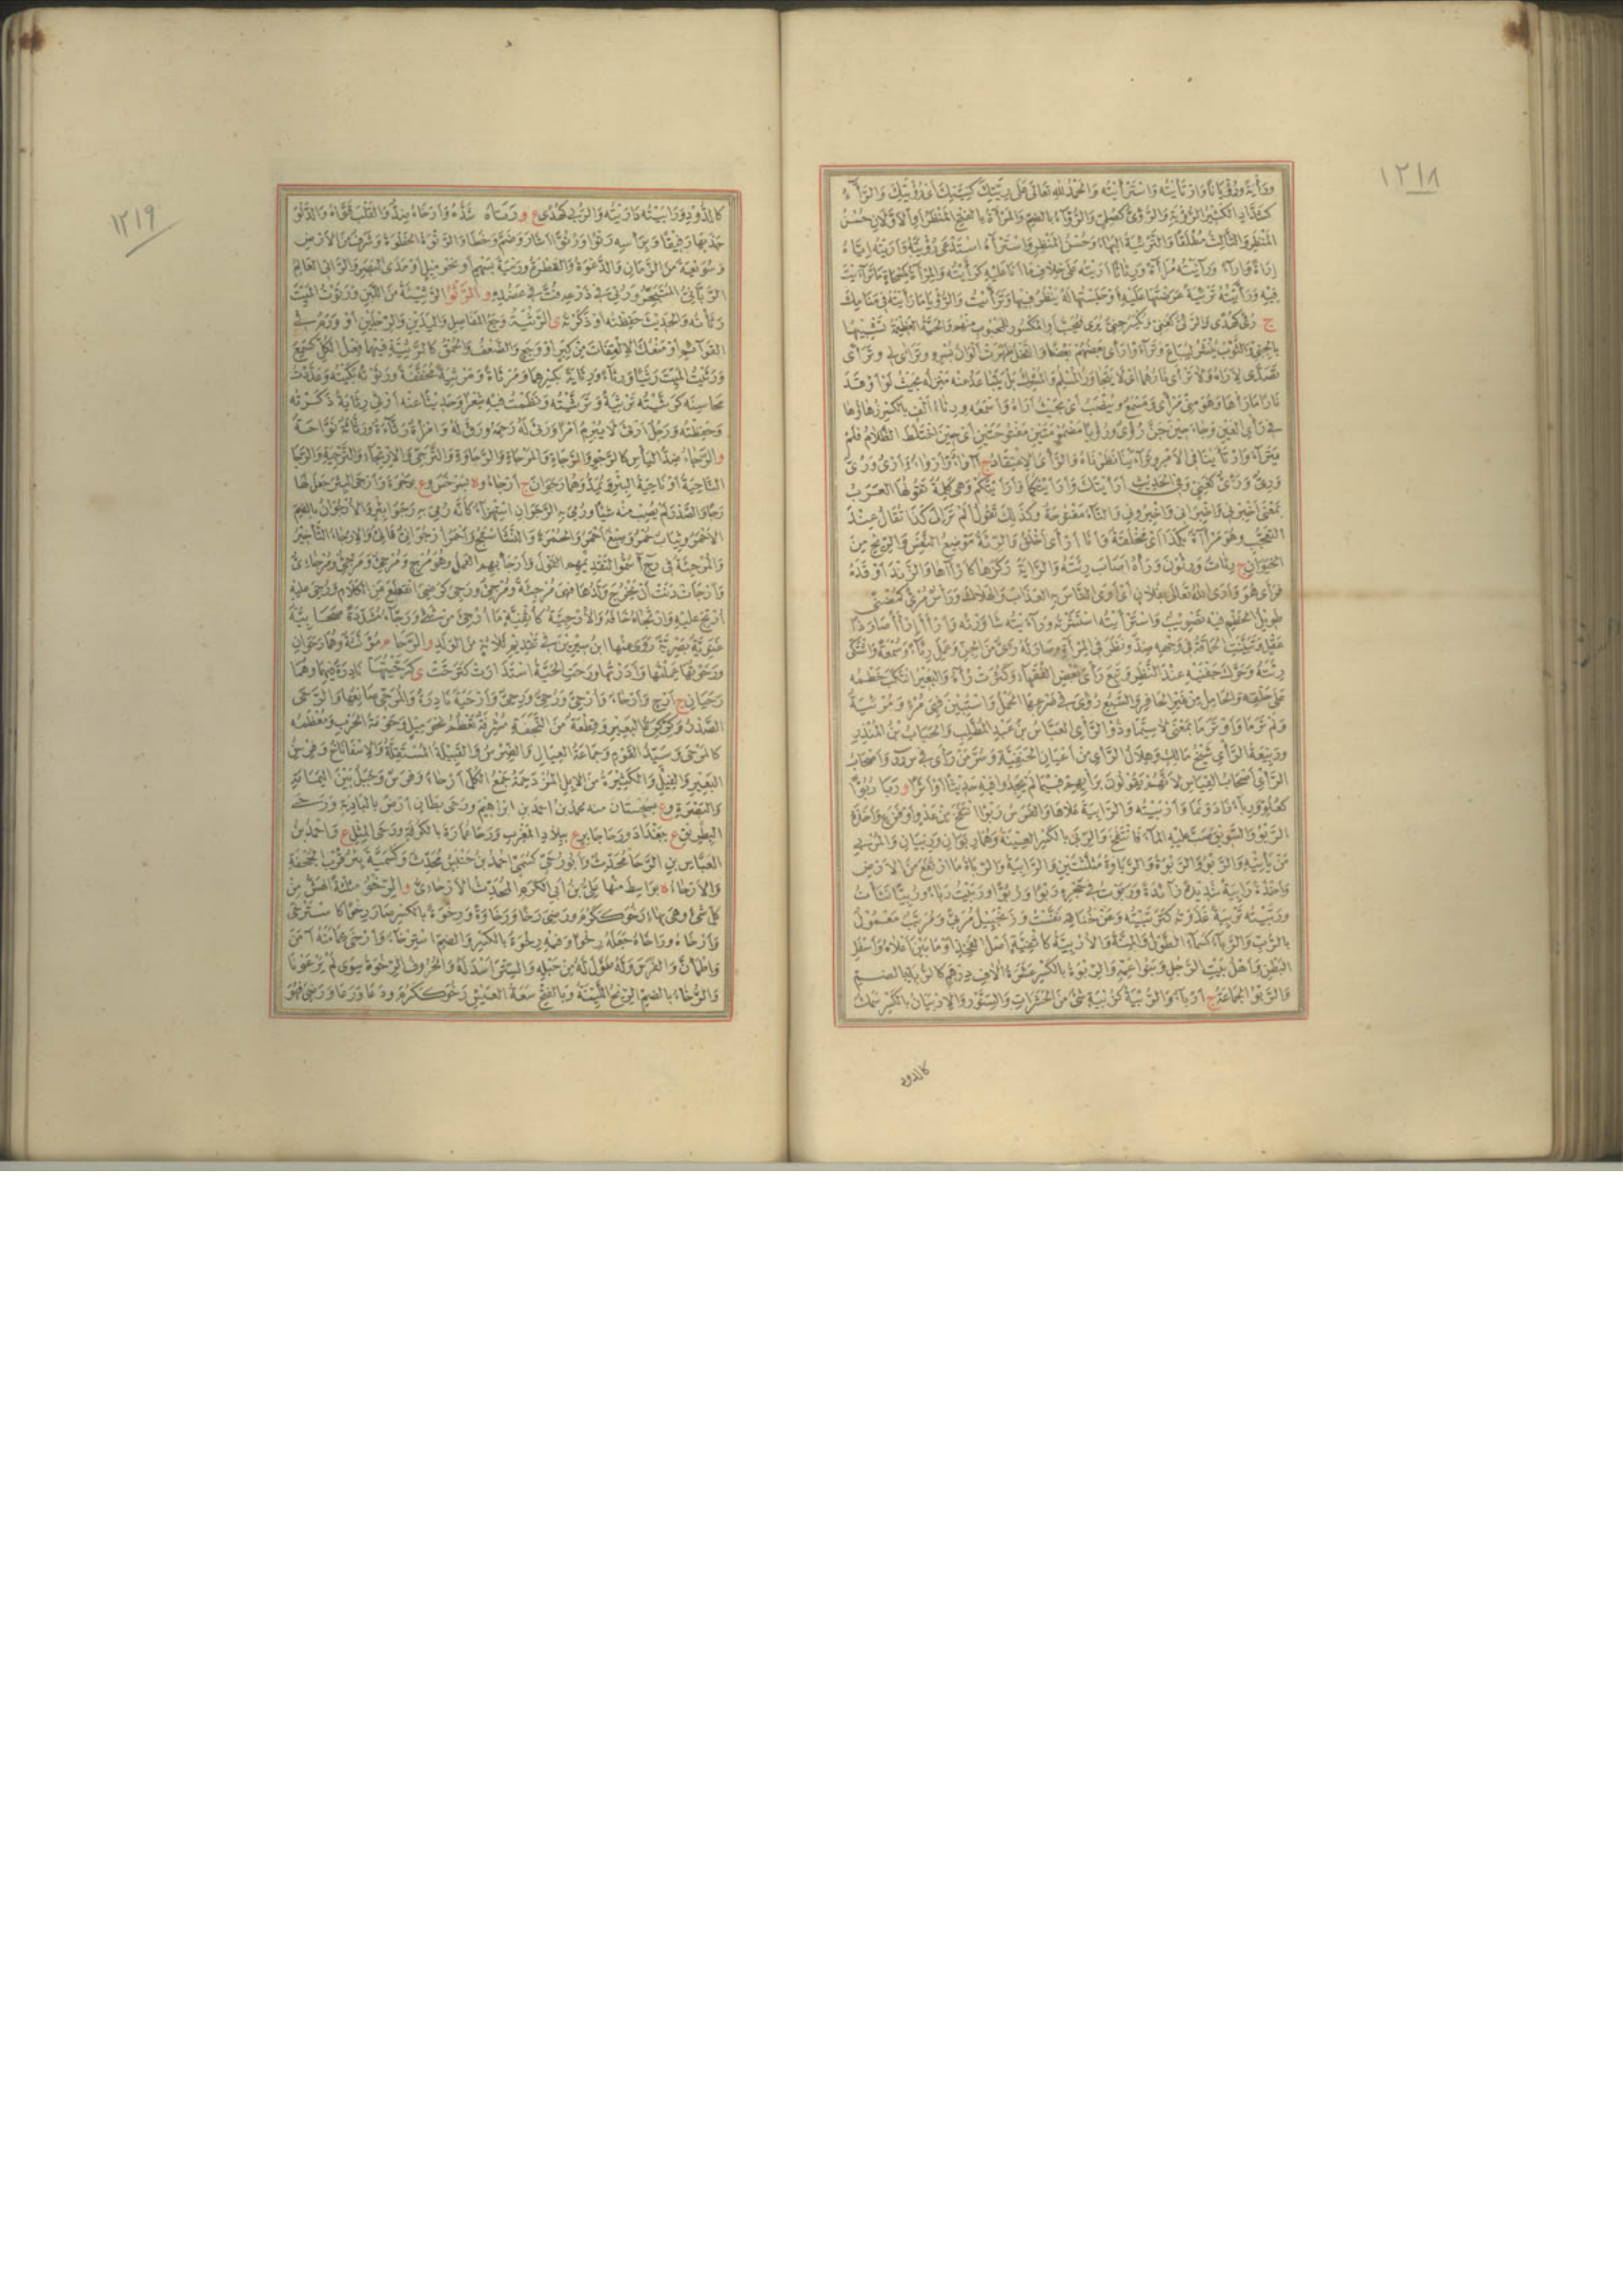 ١٢١٨
ورأية ورؤيانا وارتأيته واسترأيته والحمد لله تعالى على ريتك كنيتك أي رؤيتك والرآء
كشداد الكثير الرؤية والرؤي كصلي والرؤاء بالضم والمرآة بالفتح المنظر أو الأولان حسن
المنظر والثالث مطلقا والترئية البهاء وحسن المنظر واسترآه استدعى رؤيته وأريته إياه
إراءة وإراء وراءيته مراءاة ورئاء أريته على خلاف ما أنا عليه كرأيته والمرآة كمسحاة ما تراءيت
فيه ورأيته ترئية عرضتها عليه أو حبستها له ينظر فيها وتراءيت والرؤيا ما رأيته في منامك
ج رؤى كهدى والرئي كغني ويكسر جني يرى فيحب أو المكسور للمحبوب منهم والحية العظيمة تشبيها
بالجني والثوب ينشر ليباع وتراءوا رأى بعضهم بعضا والنخل ظهرت ألوان بسره وتراءى لي وترأى
تصدى لأراه ولا تراءى نارهما أي لا يتجاور المسلم والمشرك بل يتباعد عنه منزله بحيث لو أوقد
نارا ما رآها وهو مني مرأى ومسمع وينصب أي بحيث أراه وأسمعه ورئاء ألف بالكسر زهاؤها
في رأي العين وجاء حين جن رؤي ورؤيا مضمومتين مفتوحتين أي حين اختلط الظلام فلم
يتراءوا وارتأينا في الأمر وتراءيناه نظرناه والرأي الاعتقاد ج آراء وأرآء وأرى ورى
وري ورئي كغني وفي الحديث أرأيتك وأرأيتكما وأرأيتكم وهي كلمة تقولها العرب
بمعنى أخبرني وأخبراني وأخبروني والتاء مفتوحة وكذلك تقول ألم تر إلى كذا تقال عند
التعجب وهو مرآة بكذا أي مخلقة وأنا أرأى أخلق والرئة موضع النفس والريح من
الحيوان ج رئات ورئون ورآه أصاب رئته والراية ركزها كأرآها والزند أوقده
فرأى هو وأرى الله تعالى بفلان أي أرى الناس به العذاب والهلاك ورأس مرأى كمضنى
طويل الخطم فيه تصويب واسترأيته استشرته وراءيته شاورته وأرأى إرآء صار ذا
عقل وتبينت الحماقة في وجهه ضد ونظر في المرآة وصار له رئي من الجن وعمل رئاء وسمعة واشتكى
رئته وحرك جفنيه عند النظر وتبع رأي بعض الفقهاء وكثرت رؤاه والبعير انتكب خطمه
على حلقه والحامل من غير الحافر والسبع رؤي في ضرعها الحمل واستبين فهي مرء ومرئية
ولم تر ما وأو تر ما بمعنى لا سيما وذو الرأي العباس بن عبد المطلب والحباب بن المنذر
وربيعة الرأي شيخ مالك وهلال الرأي من أعيان الحنفية وسر من رأى في س ر ر وأصحاب
الرأي أصحاب القياس لأنهم يقولون برأيهم فيما لم يجدوا فيه حديثا أو أثرا و ربا ربوا
كعلو ورباء زاد ونما وأربيته والرابية علاها والفرس ربوا انتفخ من عدو أو فزع وأخذه
الربو والسويق صب عليه الماء فانتفخ والربى بالكسر العينة وهما ربوان وربيان والمربي
من يأتيه والربو والربوة والرباوة مثلثتين والرابية والرباة ما ارتفع من الأرض
وأخذة رابية شديدة زائدة وربوت في حجره ربوا وربوا وربيت رباء وربيا نشأت
وربيته تربية غذوته كتربيته وعن خناقه نفست وزنجبيل مربى ومربب معمول
بالرب والرباء كسماء الطول والمنة والأربية كأثفية أصل الفخذ أو ما بين أعلاه وأسفل
البطن وأهل بيت الرجل وبنو عمه والربوة بالكسر عشرة آلاف درهم كالربة بالضم
والربو الجماعة ج أرباء والربية كزبية شيء من الحشرات والسنور والإربيان بالكسر سمك
كالدود
١٢١٩
كالدود ورابيته داريته والربى كهدى ع و رتاه شده وأرخاه ضد والقلب قواه والدلو
جذبها رفيقا وبرأسه رتوا ورتوا أشار وضم وخطا والرتوة الخطوة وشرف من الأرض
وسويعة من الزمان والدعوة والفطرة ورمية بسهم أو نحو ميل أو مدى البصر والراتي العالم
الرباني المتبحر ورتي في ذرعه فت في عضده و الرثو الرثيئة من اللبن ورثوت الميت
رثأته والحديث حفظته أو ذكرته ى الرثية وجع المفاصل واليدين والرجلين أو ورم في
القوائم أو منعك الالتفات من كبر أو وجع والضعف والحمق كالرثية فيهما فعل الكل كسمع
ورثيت الميت رثيا ورثاء ورثاية بكسرهما ومرثاة ومرثية مخففة ورثوته بكيته وعددت
محاسنه كرثيته ترثية وترثيته ونظمت فيه شعرا وحديثا عنه أرثي رثاية ذكرته
وحفظته ورجل أرثى لا يبرم أمرا ورثى له رحمه ورق له وامرأة رثاءة ورثاية نواحة
و الرجاء ضد اليأس كالرجو والرجاة والمرجاة والرجاوة والترجي والارتجاء والترجية والرجا
الناحية أو ناحية البئر ويمد وهما رجوان ج أرجاء و ة بسرخس و ع بوجرة وأرجى البئر جعل لها
رجا والصيد لم يصب منه شيئا ورمي به الرجوان استهزاء كأنه رمي به رجوا بئر والأرجوان بالضم
الأحمر وثياب حمر وصبغ أحمر والحمرة والنشاستج وأحمر أرجواني قانئ والإرجاء التأخير
والمرجئة في ر ج أ سموا لتقديمهم القول وإرجائهم العمل وهو مرج ومرجئ ومرجي ومرجائي
وأرجأت دنت أن يخرج ولدها فهي مرجئة ومرجئ ورجي كرضي انقطع عن الكلام ورجي عليه
أرتج عليه وارتجاه خافه والأرجية كأثفية ما أرجئ من شيء ورجاء مشددة صحابية
غنوية بصرية روى عنها ابن سيرين في تقديم ثلاثة من الولد و الرحا م مؤنثة وهما رحوان
ورحوتها عملتها وأدرتها ورحت الحية استدارت كترحت ى كرحيتها نادرة فيهما وهما
رحيان ج أرح وأرحاء وأرحي ورحي ورحي وأرحية نادرة والمرحي صانعها والرحى
الصدر وكركرة البعير وقطعة من النجفة مشرفة تعظم نحو ميل وحومة الحرب ومعظمه
كالمرحى وسيد القوم وجماعة العيال والضرس والقبيلة المستقلة والإسفاناخ وفرسن
البعير والفيل والكثيرة من الإبل المزدحمة جمع الكل أرحاء وفرس وجبل بين اليمامة
والبصرة و ع بسجستان منه محمد بن أحمد بن إبراهيم ورحى بطان أرض بالبادية ورحى
البطريق ع ببغداد ورحا جابر ع ببلاد المغرب ورحا عمارة بالكوفة ورحى المثل ع وأحمد بن
العباس بن الرحا محدث وأبو رحي كسمي أحمد بن خنبش محدث وكسمية بئر قرب الجحفة
والأرحاء ة بواسط منها علي بن أبي الكرم المحدث الأرحائي و الرخو مثلثة الهش من
كل شيء وهي بهاء رخو ككرم ورضي رخا ورخاوة ورخوة بالكسر صار رخوا كاسترخى
وأرخاه وراخاه جعله رخوا وفيه رخوة بالكسر والضم استرخاء وأرخى عمامته أمن
واطمأن والفرس وله طول له من حبله والستر أسدله والحروف الرخوة سوى لم يرعونا
والرخاء بالضم الريح اللينة وبالفتح سعة العيش رخو ككرم ودعا ورعا ورضي فهو